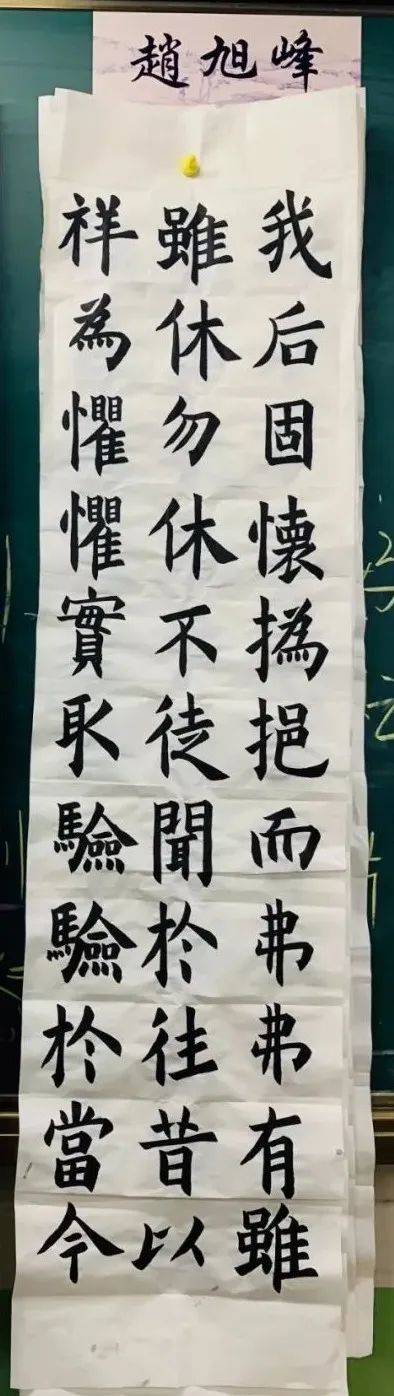 趙旭峰
我后固懷撝挹而弗弗有雖
雖休勿休不徒聞於往昔以
祥為懼懼實取驗驗於當今